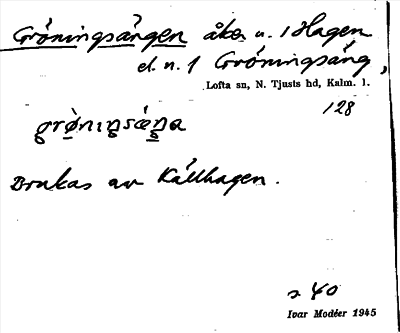 Gröningsängen åker u. 1 Hagen
el. n. 1 Gröningsäng,
Lofta sn, N. Tjusts hd, Kalm. l.
128
grǿ̀nıŋsǽŋa
Brukas av Källhagen.
s 40
Ivar Modéer 1945